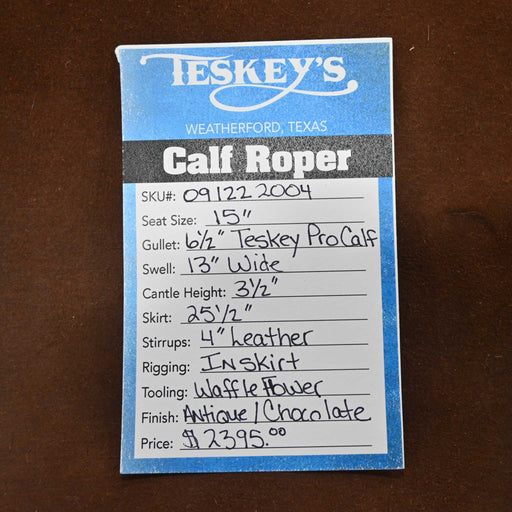 TESKEY'S
WEATHERFORD, TEXAS
Calf Roper
SKU#: 091222004
Seat Size: 15"
Gullet: 6½" Teskey Pro Calf
Swell: 13" Wide
Cantle Height: 3½"
Skirt: 25½"
Stirrups: 4" Leather
Rigging: Inskirt
Tooling: Waffle Flower
Finish: Antique / Chocolate
Price: $2395.00